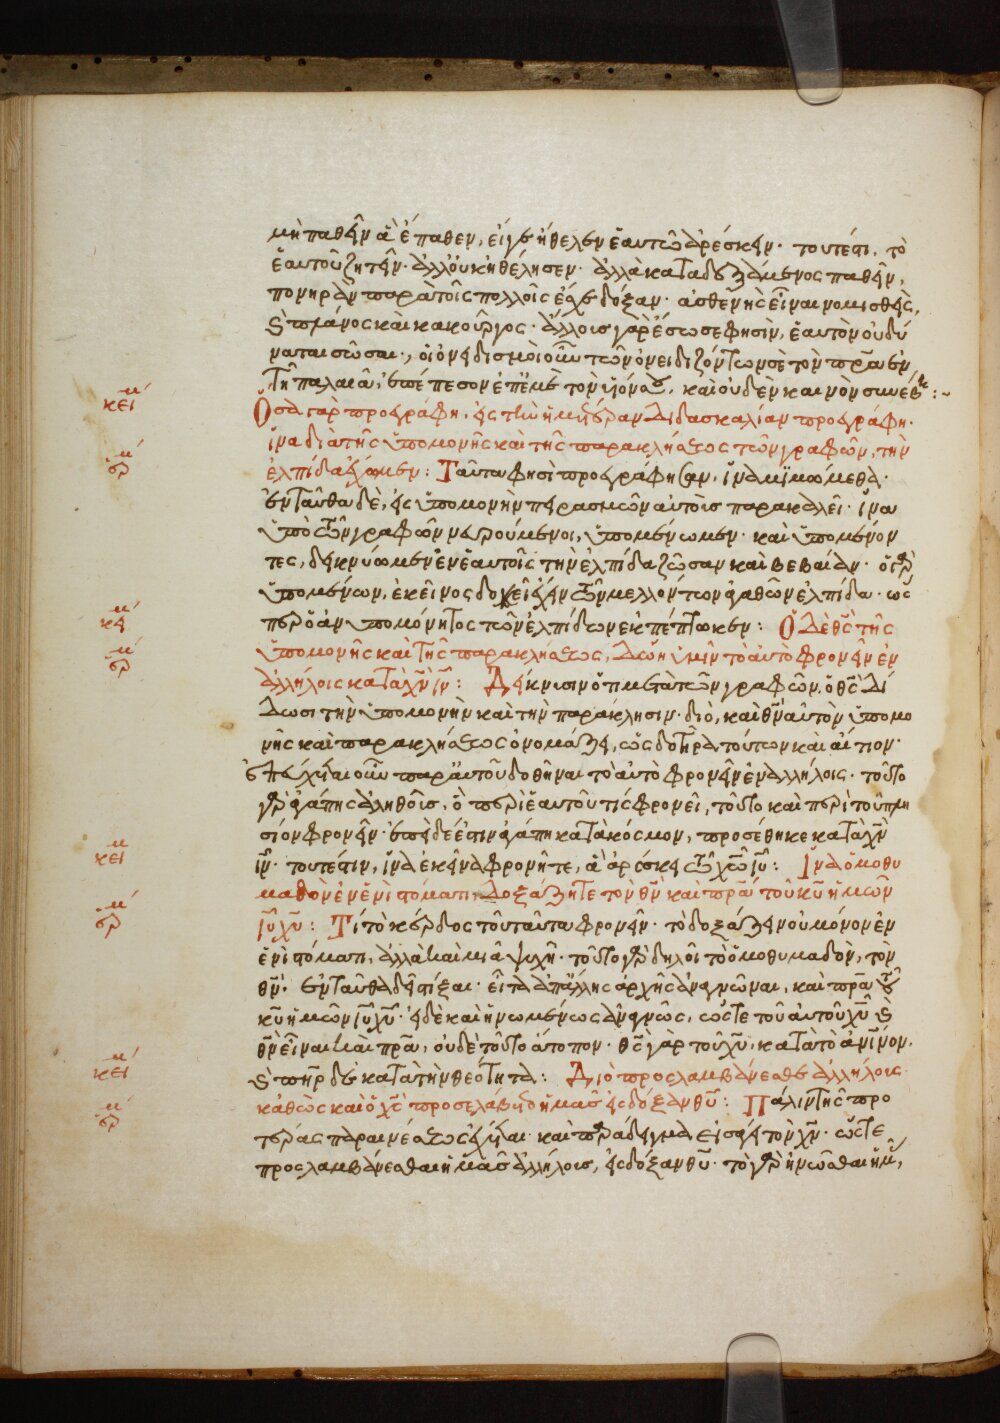 μὴ παθεῖν ἃ ἔπαθεν, εἴγε ἤθελεν ἑαυτῶ ἀρέσκειν· τουτέστι, τὸ
ἑαυτοῦ ζητεῖν· ἀλλ' οὐκ ἠθέλησεν· ἀλλὰ καταδεξάμενος παθεῖν,
πονηρὰν παρὰ τοῖς πολλοῖς ἔσχε δόξαν· ἀσθενὴς εἶναι νομισθεὶς,
καὶ πλάνος καὶ κακοῦργος· ἄλλους γὰρ ἔσωσε φησὶν, ἑαυτὸν οὐ δύ
ναται σῶσαι·, οἱ ὀνειδισμοὶ οὖν τῶν ὀνειδιζόντων σὲ τὸν πρα ἐν
τῆ παλαιᾶ, ἐπέπεσον ἐπ' ἐμὲ τὸν υἱόν σου, καὶ οὐδὲν καινὸν συνέβη :~
κεί
Ὅσα γὰρ προεγράφη, εἰς τὴν ἡμετέραν διδασκαλίαν προεγράφη·
ἵνα διὰ τῆς ὑπομονῆς καὶ τῆς παρακλήσεως τῶν γραφῶν, τὴν
ἐλπίδα ἔχωμεν : Ταῦτα φησὶ προεγράφησαν, ἵνα μιμώμεθα·
ἐνταῦθα δὲ, εἰς ὑπομονὴν πειρασμῶν αὐτοὺς παρακαλεῖ· ἵνα
ὑπὸ τῶν γραφῶν νευρούμενοι, ὑπομένωμεν· καὶ ὑπομένον
τες, δεικνύωμεν ἐν ἑαυτοῖς τὴν ἐλπίδα ζῶσαν καὶ βεβαίαν· ὁ γὰρ
ὑπομένων, ἐκεῖνος δοκεῖ ἔχειν τῶν μελλόντων ἀγαθῶν ἐλπίδα· ὡς
περ ὁ ἀνυπομόνητος τῶν ἐλπίδων ἐκπέπτωκεν : Ὁ δὲ θς τῆς
ὑπομονῆς καὶ τῆς παρακλήσεως, δώη ὑμῖν τὸ αὐτὸ φρονεῖν ἐν
ἀλλήλοις κατὰ χν ιν : Δείκνυσιν ὅτι μετὰ τῶν γραφῶν, ὁ θς δί
δωσι τὴν ὑπομονὴν καὶ τὴν παράκλησιν· διὸ, καὶ θν αὐτὸν ὑπομο
νῆς καὶ παρακλήσεως ὀνομάζει, ὡς δοτῆρα τούτων καὶ αἴτιον·
ἐπεύχεται οὖν παρ' αὐτοῦ δοθῆναι τὸ αὐτὸ φρονεῖν ἐν ἀλλήλοις· τοῦτο
γὰρ ἀγάπης ἀληθοῦς, ὃ περὶ ἑαυτοῦ τίς φρονεῖ, τοῦτο καὶ περὶ τοῦ πλη
σίον φρονεῖν· ἐπεὶ δέ ἐστιν ἀγάπη κατὰ κόσμον, προσέθηκε κατὰ χν
ιν· τουτέστιν, ἵνα ἐκεῖνα φρονῆτε, ἃ ἀρέσκει τῶ χω ιυ : Ἵνα ὁμοθυ
μαδὸν ἐν ἑνὶ στόματι δοξάζητε τὸν θν καὶ πρα τοῦ κυ ἡμῶν
ιυ χυ : Τί τὸ κέρδος τοῦ ταῦτα φρονεῖν· τὸ δοξάζειν οὐ μόνον ἐν
ἑνὶ στόματι, ἀλλὰ καὶ μιᾶ ψυχῆ· τοῦτο γὰρ δηλοῖ τὸ ὁμοθυμαδὸν, τὸν
θν· ἐνταῦθα δὲ στίξαι· εἶτα ἀπ' ἄλλης ἀρχῆς ἀναγνῶναι, καὶ πρα τοῦ
κυ ἡμῶν ιυ χυ· εἰ δὲ καὶ ἡνωμένως ἀναγνῶς, ὥστε τοῦ αὐτοῦ χυ καὶ
θν εἶναι καὶ πρα, οὐδὲ τοῦτο ἄτοπον· θς γὰρ τοῦ χυ, κατὰ τὸ ἀνινον,
καὶ πηρ δὲ κατὰ τὴν θεότητα : Διὸ προσλαμβάνεσθε ἀλλήλους
καθὼς καὶ ὁ χς προσελάβετο ἡμᾶς εἰς δόξαν θυ : Πάλιν τῆς προ
τέρας παραινέσεως ἔχεται· καὶ παράδειγμα εἰσάγει τὸν χν· ὥστε
προσλαμβάνεσθαι ἡμᾶς ἀλλήλους, εἰς δόξαν θυ· τὸ γὰρ ἡνῶσθαι ἡμ,